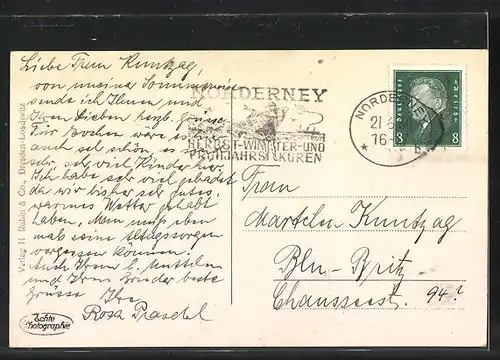 Liebe Frau Kuntzag,
von unserer Sommerreise
sende ich Ihnen und
Ihren Lieben herzl. Grüsse.
Für Wochen wäre es hier
auch sehr schön, es sind
sehr, sehr viel Kinder hier.
Ich habe sehr viel gebadet
da wir bisher sehr gutes,
warmes Wetter gehabt
haben. Man muss eben
mal seine Alltagssorgen
vergessen können.
Auch Ihrer l. Mutti
und Ihrem Bruder beste
Grüsse Ihre
Rosa
NORDERNEY
HERBST-WINTER-UND
FRÜHJAHRSKUREN
NORDERNEY
21.6
16-
* b
Deutsches Reich
8 8
Frau
Kuntzag
Bln-Britz
Chausseest. 94?
Verlag H. Rubin & Co., Dresden-Loschwitz
Echte
Photographie